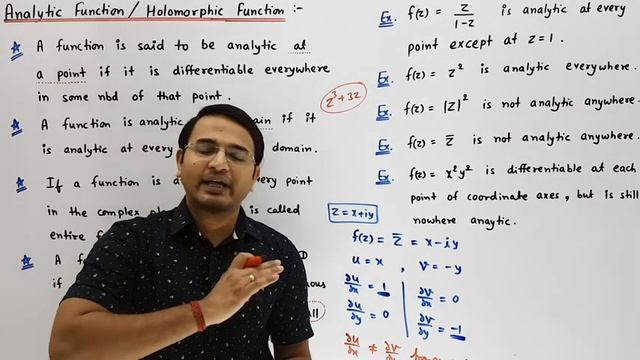 Analytic Function / Holomorphic Function :-
★ A function is said to be analytic at
a point if it is differentiable everywhere
in some nbd of that point.
z³+3z
★ A function is analytic if it
is analytic at every domain.
★ If a function is point
in the complex is called
entire
★ A
if
Ex. f(z) = z/(1-z) is analytic at every
point except at z = 1.
Ex. f(z) = z² is analytic everywhere.
Ex. f(z) = |z|² is not analytic anywhere.
Ex. f(z) = z̅ is not analytic anywhere.
Ex. f(z) = x²y² is differentiable at each
point of coordinate axes, but is still
nowhere anaytic.
z = x+iy
f(z) = z̅ = x-iy
u = x , v = -y
∂u/∂x = 1 ∂v/∂x = 0
∂u/∂y = 0 ∂v/∂y = -1
∂u/∂x ≠ ∂v/∂y